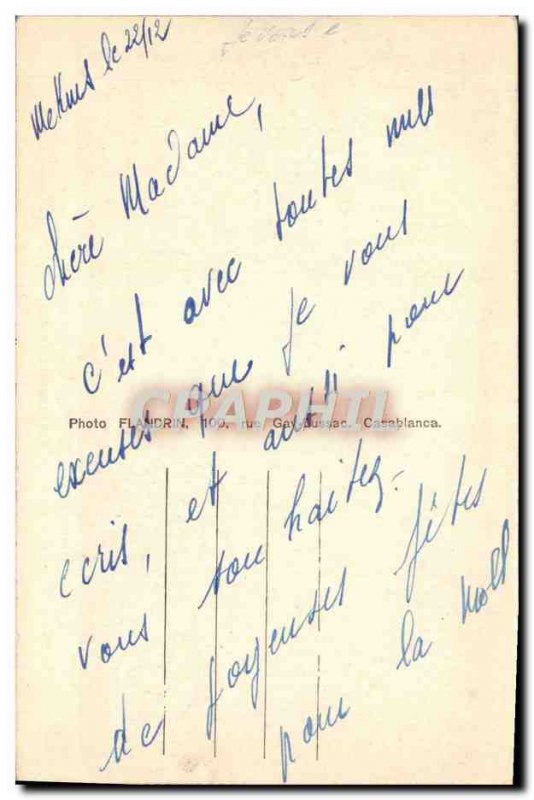 Meknès le 22/12
Chère Madame,
c'est avec toutes mes
excuses que je vous
ecris, et aussi pour
vous souhaiter
de joyeuses fêtes
pour la Noël
Photo FLANDRIN, 100, rue Gay-Lussac. Casablanca.
CPAPHIL